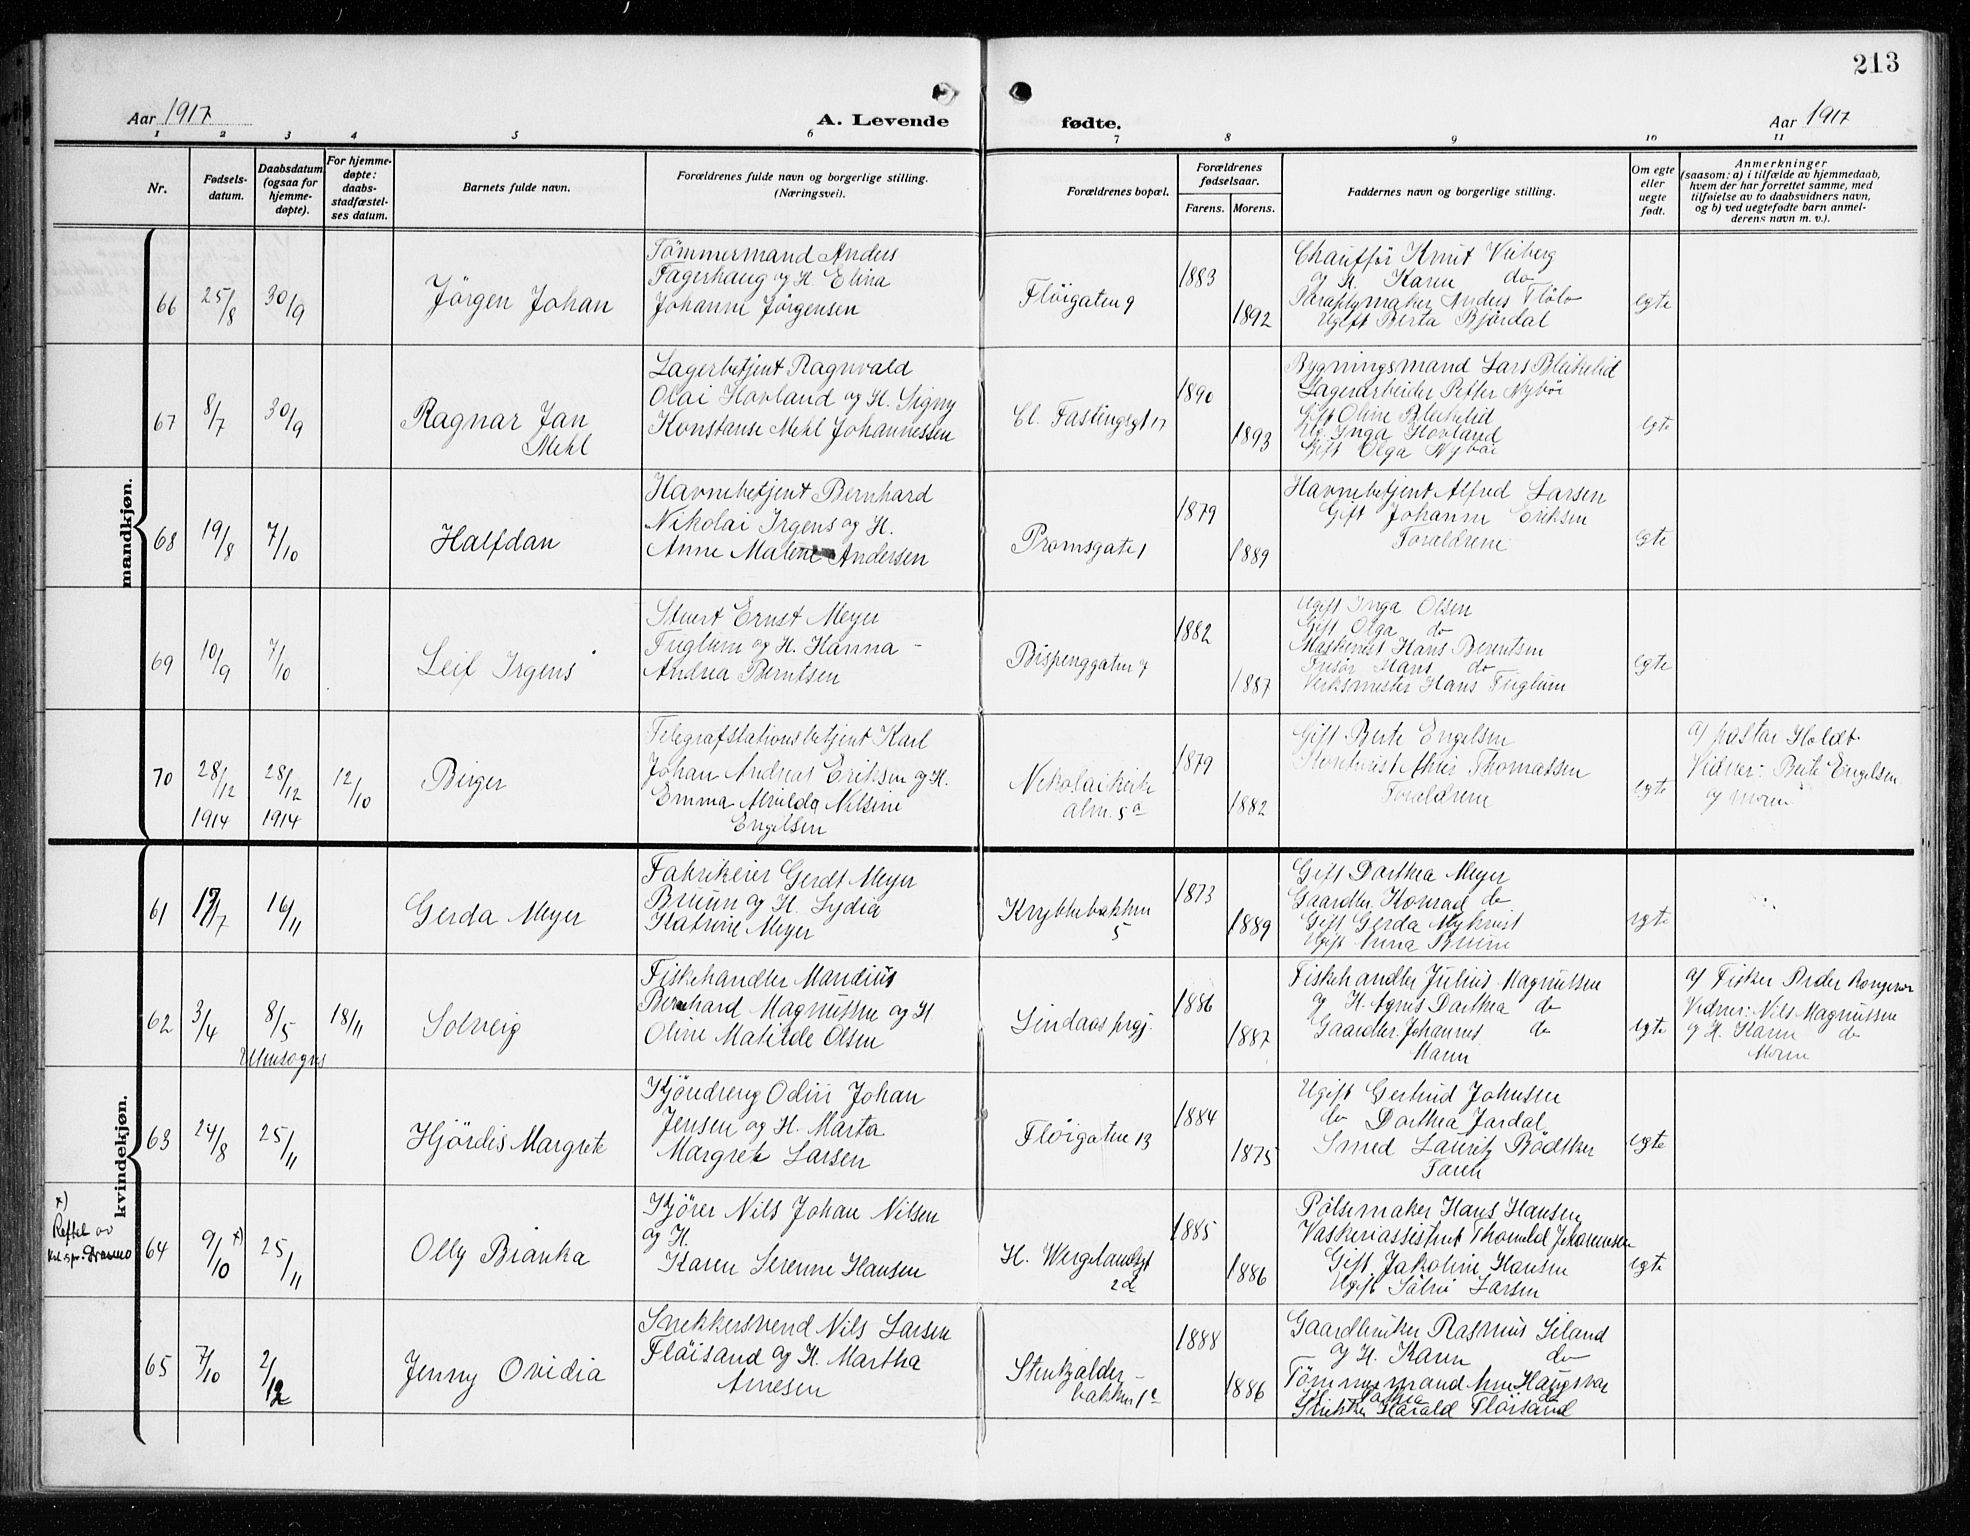 213
Aar 1917
A. Levende
fødte.
Aar 1917
1 2 3 4 5 6 7 8 9 10 11
Nr.
Fødsels-
datum.
Daabsdatum
(ogsaa for
hjemme-
døpte).
For hjemme-
døpte:
daabs-
stadfæstel-
ses datum.
Barnets fulde navn.
Forældrenes fulde navn og borgerlige stilling.
(Næringsvei).
Forældrenes bopæl.
Forældrenes
fødselsaar.
Farens. Morens.
Faddernes navn og borgerlige stilling.
Om egte
eller
uegte
født.
Anmerkninger
(saasom: a) i tilfælde av hjemmedaab,
hvem der har forrettet samme, med
tilføielse av to daabsvidners navn,
og b) ved uegtefødte barn anmel-
derens navn m. v.).
mandkjøn.
66
25/8
30/9
Jörgen Johan
Tömmermand Anders
Fagerhaug og H. Elina
Johanne Jørgensen
Fløigaten 9
1883
1892
Chauffør Knut Viiberg
og H. Karen do
Paraplymaker Anders Flölo
Ugift Berta Bjørdal
egte
67
8/7
30/9
Ragnar Jan
Mehl
Lagerbetjent Ragnvald
Olai Hovland og H. Signy
Konstanse Mehl Johannessen
Cl. Fastingsgt 17
1890
1893
Bygningsmand Lars Bleikelid
Lagerarbeider Petter Nybøe
Gift Oline Bleikelid
Ug. Inga Hovland
Gift Olga Nybøe
egte
68
19/8
7/10
Halfdan
Havnebetjent Bernhard
Nikolai Irgens og H.
Anne Malene Andersen
Promsgate 1
1879
1889
Havnebetjent Alfred Larsen
Gift Johanne Eriksen
Forældrene
egte
69
10/9
7/10
Leif Irgens
Stuert Ernst Meyer
Fuglum og H. Hanna
Andrea Berntsen
Bispenggaten 7
1882
1887
Ugift Inga Olsen
Gift Olga do
Maskinist Hans Berentsen
Frisør Hans do
Verksmester Hans Fuglum
egte
70
28/12
1914
28/12
1914
12/10
Birger
Telegrafstationsbetjent Karl
Johan Andreas Eriksen og H.
Emma Alvilda Nilsine
Engelsen
Nikolaikirke
alm. 5 a
1879
1882
Gift Berte Engelsen
Thomassen
Forældrene
egte
a/ pastor Holdt
Vidner: Berte Engelsen
og moren
kvindekjøn.
61
17/7
16/11
Gerda Meyer
Fabrikeier Gerdt Meyer
Bruun og H. Lydia
Katrine Meyer
Krybbebakken
5
1873
1889
Gift Dorthea Meyer
Gaardbr. Konrad do
Gift Gerda Mykvist
Ugift Anna Bruun
egte
62
3/4
8/5
18/11
Solveig
Fiskehandler Mandius
Bernhard Magnussen og H
Oline Matilde Olsen
Lindaas prgj.
1886
1887
Fiskehandler Julius Magnussen
og H. Agnes Dorthea do
Gaardbr. Johannes do
egte
a/ Fisker Peder
Vidner: Nils Magnussen
og H. Karen do
Moren
63
24/8
25/11
Hjördis Margrete
Kjöredreng Odin Johan
Jensen og H. Marta
Margrete Larsen
Fløigaten 13
1884
1875
Ugift Gertrud Johnsen
do Dorthea Jordal
Smed Lauritz Bödtker
Faren
egte
x)
64
9/10 x)
25/11
Olly Bianka
Kjörer Nils Johan Nilsen
og H.
Karen Serenne Hansen
H. Wergelandsgt
2d
1885
1886
Pølsemaker Hans Hansen
Vaskeriassistent Thomas Johannesen
Gift Jakoline Hansen
Ugift Larsen
egte
65
7/10
2/12
Jenny Ovidia
Snekkersvend Nils Larsen
Fløisand og H. Martha
Arnesen
Stenkjelder-
bakken 1c
1888
1886
Gaardbruker Rasmus Seland
og H. Karen do
Tömmermand
Snekker Harald Fløisand